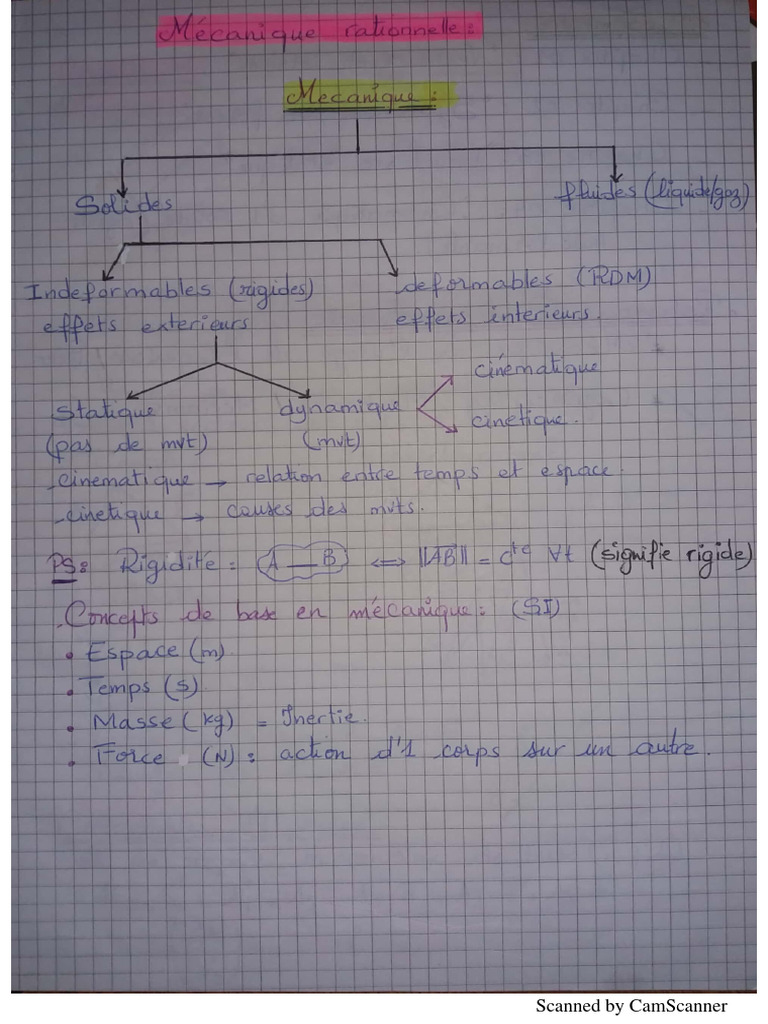 Mécanique rationnelle:
Mecanique:
Solides
fluides (liquide/gaz)
Indeformables (rigides)
effets exterieurs
deformables (RDM)
effets interieurs.
cinématique
statique
dynamique
cinetique.
(pas de mvt)
(mvt)
-cinematique → relation entre temps et espace.
-cinetique → causes des mvts.
PS: Rigidité = A — B ⟺ ||AB|| = cte ∀t (signifie rigide)
Concepts de base en mécanique: (SI)
• Espace (m)
• Temps (s)
• Masse (kg) = Inertie.
• Force (N) : action d'1 corps sur un autre.
Scanned by CamScanner